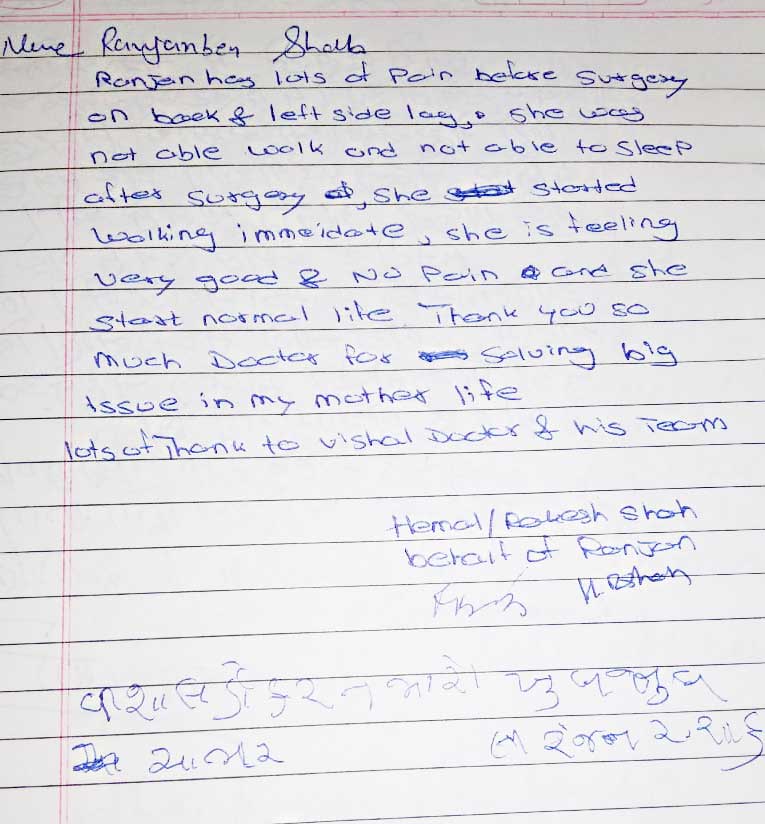 Name Ranjanben Shah
Ranjan has lots of Pain before Surgery
on back & left side leg, she was
not able walk and not able to sleep
after surgery, she started
walking immeidate, she is feeling
very good & NO Pain and she
start normal life. Thank you so
much Doctor for Solving big
issue in my mother life
lots of Thank to vishal Doctor & his Team
Hemal/Rakesh Shah
behalf of Ranjan
H.R.Shah
વીશાલ ડોકટર નો મારો ખુબ જ ખુબ
આભાર
લી રંજન ર. શાહ